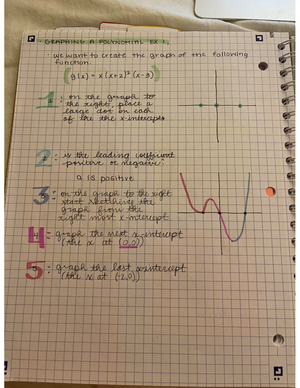 GRAPHING A POLYNOMIAL EX 1.
we want to create the graph of the following
function.
g(x) = x(x+2)²(x-3)
1: on the graph to
the right, place a
large dot on each
of the the x-intercepts
2: is the leading coefficient
positive or negative:
a is positive
3: on the graph to the right
start sketching the
graph from the
right most x-intercept
4: graph the next x-intercept
(the x at (0,0))
5: graph the last x-intercept
(the x at (-2,0))